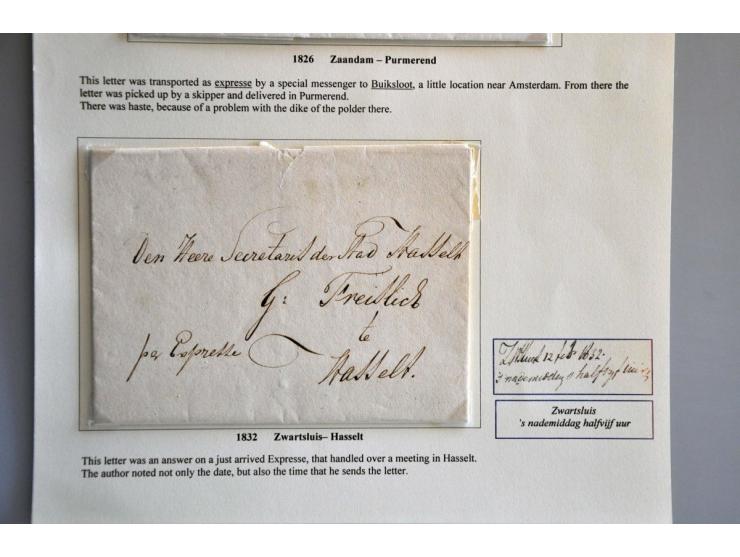 1826 Zaandam – Purmerend
This letter was transported as expresse by a special messenger to Buiksloot, a little location near Amsterdam. From there the
letter was picked up by a skipper and delivered in Purmerend.
There was haste, because of a problem with the dike of the polder there.
Den Heere Secretaris der Stad Hasselt
G: Freislich
te
Hasselt.
per Expresse
12 feb 1832.
's nademiddag halfvyf uur
Zwartsluis
's nademiddag halfvijf uur
1832 Zwartsluis– Hasselt
This letter was an answer on a just arrived Expresse, that handled over a meeting in Hasselt.
The author noted not only the date, but also the time that he sends the letter.